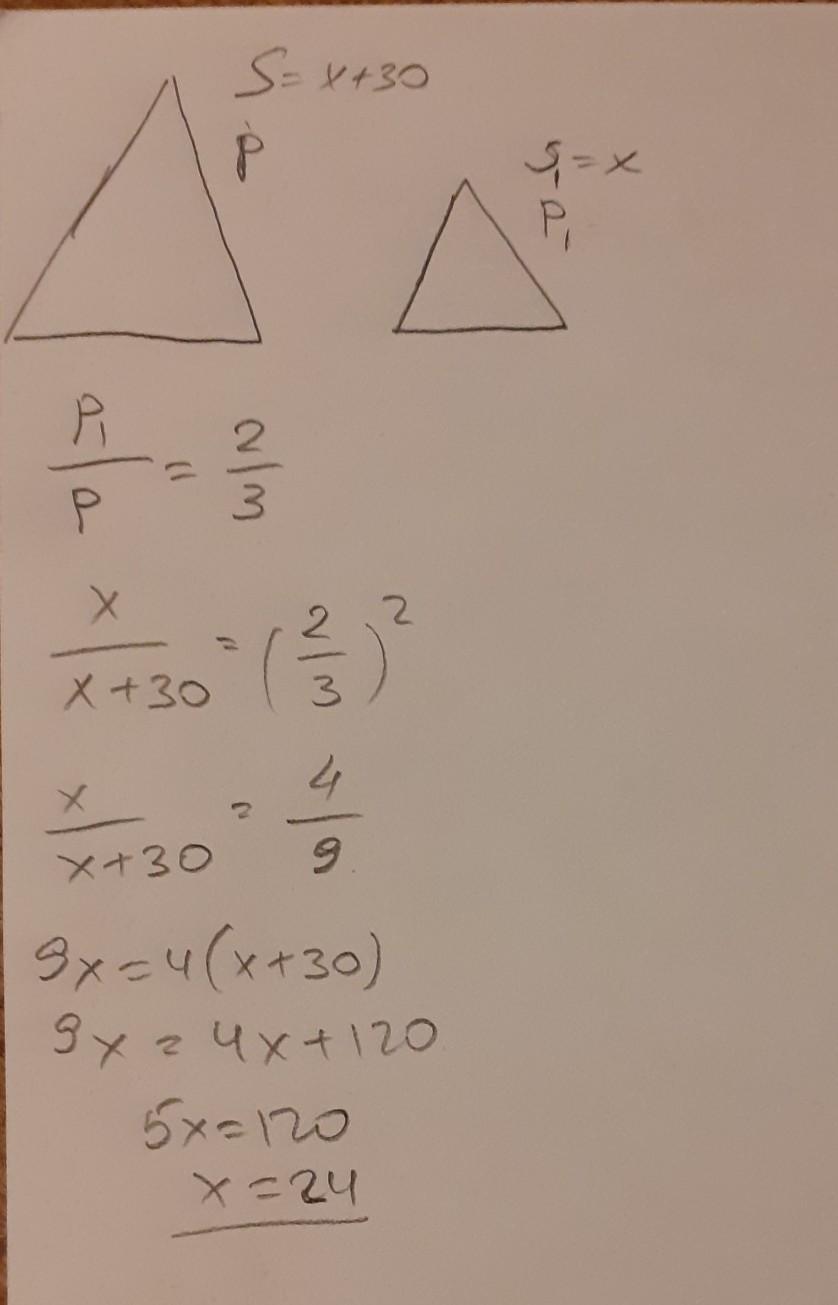 S = x+30
P
S₁ = x
P₁
P₁/P = 2/3
x/(x+30) = (2/3)²
x/(x+30) = 4/9
9x = 4(x+30)
9x = 4x+120
5x = 120
x = 24